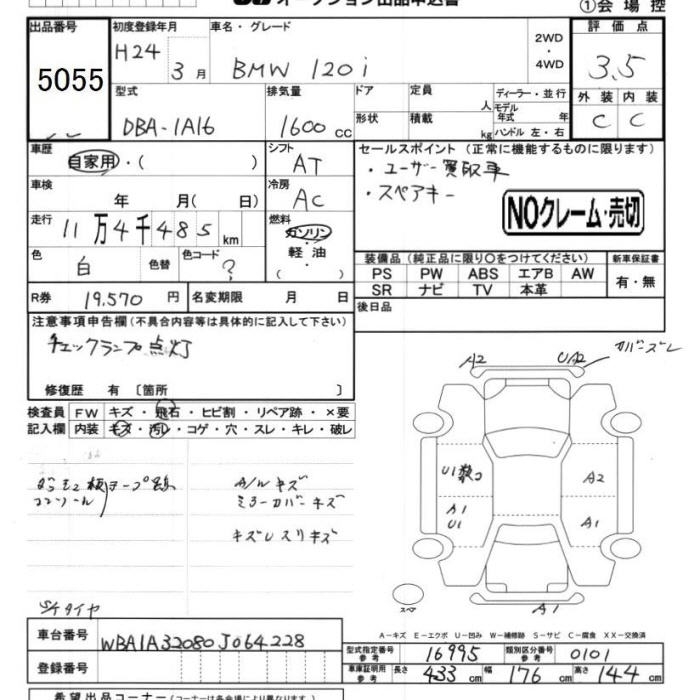 オークション出品申込書
①会場控
出品番号
5055
初度登録年月
H24 3月
車名・グレード
BMW 120i
2WD
・
4WD
評価点
3.5
外装 内装
C C
型式
DBA-1A16
排気量
1600 cc
ドア
形状
定員 人
積載 kg
ディーラー・並行
モデル年式 年
ハンドル 左・右
車歴
自家用・( )
シフト
AT
車検
年 月( 日)
冷房
AC
走行
11万4千485km
燃料
ガソリン
・
軽油
( )
色
白
色替
色コード
?
R券 19,570 円
名変期限 月 日
セールスポイント(正常に機能するものに限ります)
・ユーザー買取車
・スペアキー
NOクレーム・売切
装備品(純正品に限り○をつけてください)
PS PW ABS エアB AW
SR ナビ TV 本革
新車保証書
有・無
後日品
注意事項申告欄(不具合内容等は具体的に記入して下さい)
チェックランプ点灯
修復歴 有〔箇所 〕
検査員記入欄
FW キズ・飛石・ヒビ割・リペア跡・×要
内装 キズ・汚レ・コゲ・穴・スレ・キレ・破レ
テープ
A/Wキズ
ミラーカバーキズ
キズUスリキズ
タイヤ
A2
UA2
カバーズレ
U1
A1
U1
A2
A1
A1
スペア
A-キズ E-エクボ U-凹み W-補修跡 S-サビ C-腐食 XX-交換済
車台番号
WBA1A32080J064228
登録番号
型式指定番号 参考 16995
類別区分番号 参考 0101
車庫証明用 参考 長さ 433 cm 幅 176 cm 高さ 144 cm
希望出品コーナー(コーナーは各会場により異なります)